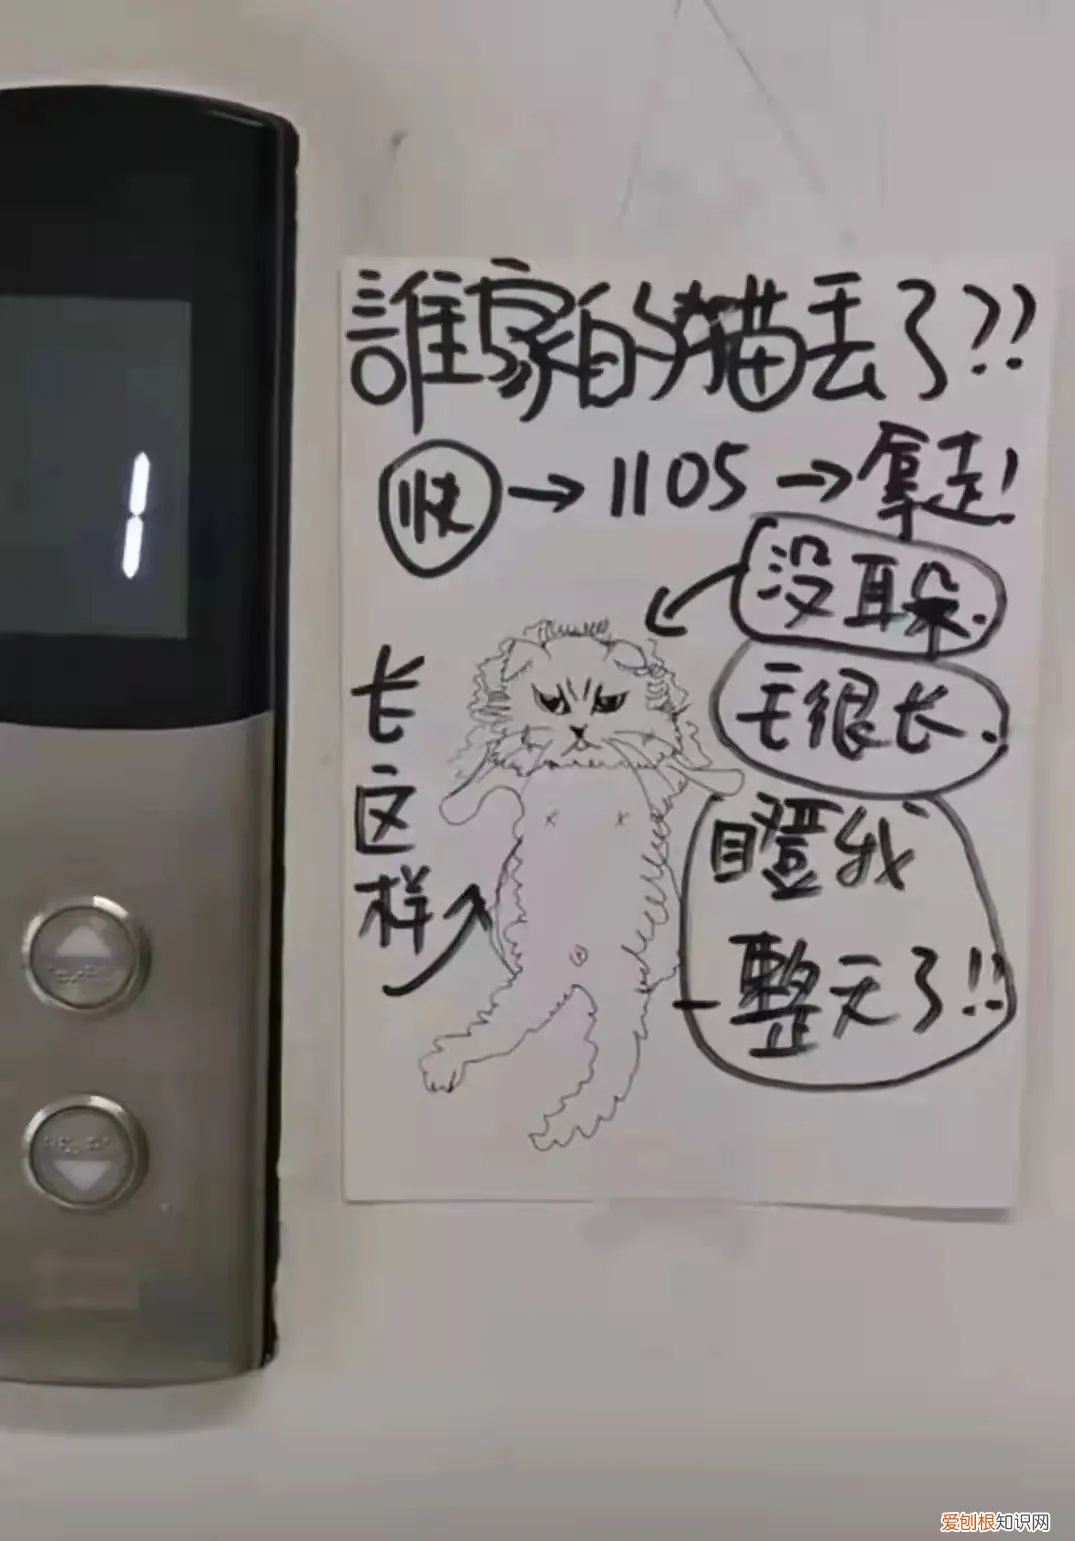 誰家的猫丢了??
快→1105→拿走!
没耳朵.
毛很长.
瞪我
整天了!!
长这样
1
爱刨根知识网